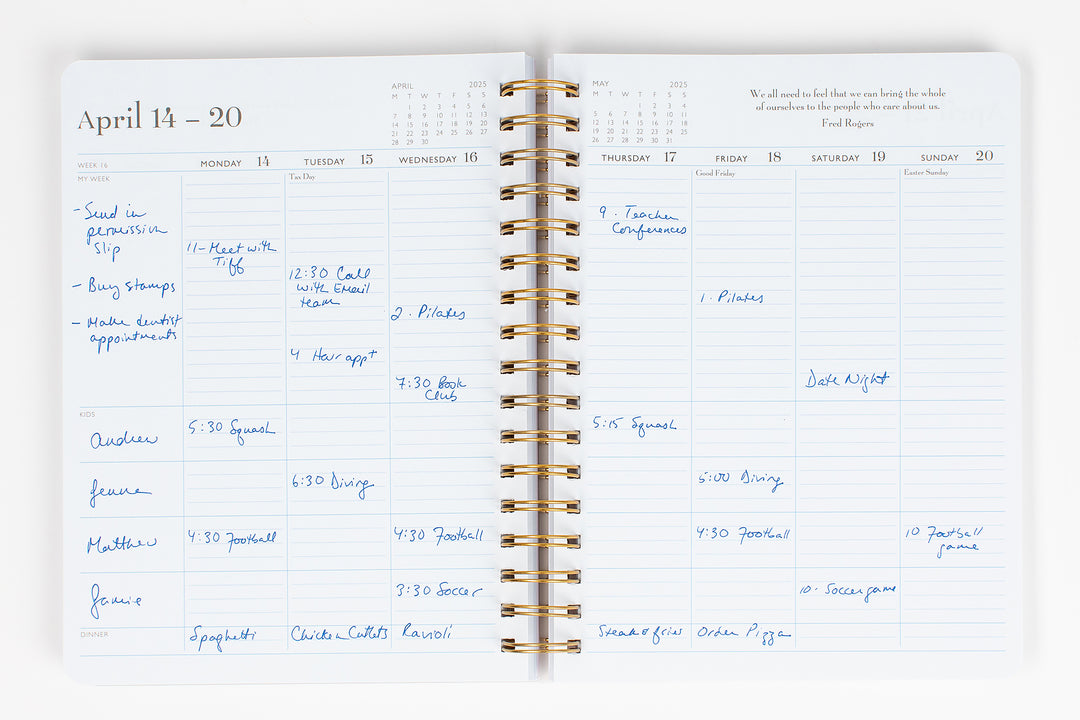 April 14 – 20
APRIL 2025
M T W T F S S
1 2 3 4 5 6
7 8 9 10 11 12 13
14 15 16 17 18 19 20
21 22 23 24 25 26 27
28 29 30
WEEK 16
MONDAY 14
TUESDAY 15
WEDNESDAY 16
MY WEEK
Tax Day
- Send in
permission
slip
- Buy stamps
- Make dentist
appointments
11 - Meet with
Tiff
12:30 Call
with Email
team
4 Hair appt
2 · Pilates
7:30 Book
Club
KIDS
Andrew
5:30 Squash
Jenna
6:30 Diving
Matthew
4:30 Football
4:30 Football
Jamie
3:30 Soccer
DINNER
Spaghetti
Chicken Cutlets
Ravioli
MAY 2025
M T W T F S S
1 2 3 4
5 6 7 8 9 10 11
12 13 14 15 16 17 18
19 20 21 22 23 24 25
26 27 28 29 30 31
We all need to feel that we can bring the whole
of ourselves to the people who care about us.
Fred Rogers
THURSDAY 17
FRIDAY 18
SATURDAY 19
SUNDAY 20
Good Friday
Easter Sunday
9 · Teacher
Conferences
1 · Pilates
Date Night
5:15 Squash
5:00 Diving
4:30 Football
10 Football
game
10 · Soccer game
Steak & fries
Order Pizza